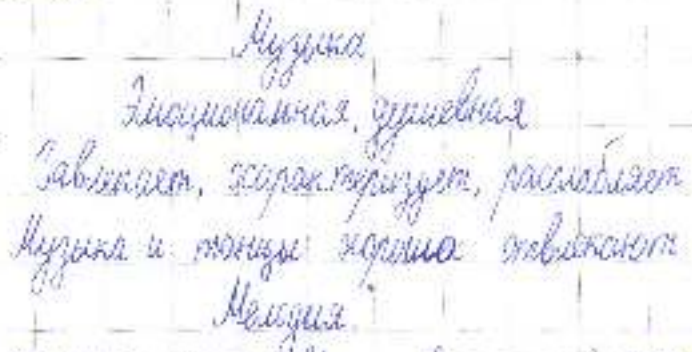 Музыка
Эмоциональная, душевная
Завлекает, характеризует, расслабляет
Музыка и танцы хорошо отвлекают
Мелодия